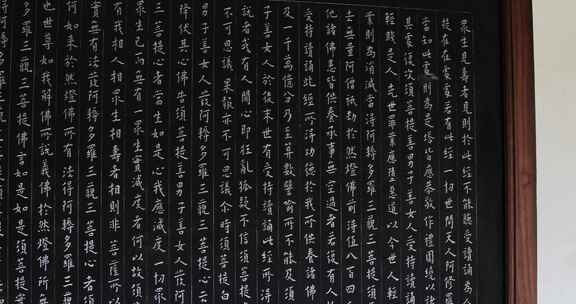 眾生見壽者見則於此經不能聽受讀誦為人
提在在處處若有此經一切世間天人阿修羅
當知此處則為是塔皆應恭敬作禮圍繞以
其處復次須菩提善男子善女人受持讀誦
輕賤是人先世罪業應墮惡道以今世人輕
業則為消滅當得阿耨多羅三藐三菩提須
去無量阿僧祇劫於然燈佛前得值八百四
他諸佛悉皆供養承事無空過者若復有人
受持讀誦此經所得功德於我所供養諸佛
及一千萬億分乃至算數譬喻所不能及須
子善女人於後末世有受持讀誦此經所得
說者或有人聞心即狂亂狐疑不信須菩提
不可思議果報亦不可思議爾時須菩提白
男子善女人發阿耨多羅三藐三菩提心云
降伏其心佛告須菩提善男子善女人發阿
三菩提心者當生如是心我應滅度一切眾
眾生已而無有一眾生實滅度者何以故須
有我相人相眾生相壽者相則非菩薩所以
實無有法發阿耨多羅三藐三菩提心者須
何如來於然燈佛所有法得阿耨多羅三藐
也世尊如我解佛所說義佛於然燈佛所無
多羅三藐三菩提佛言如是如是須菩